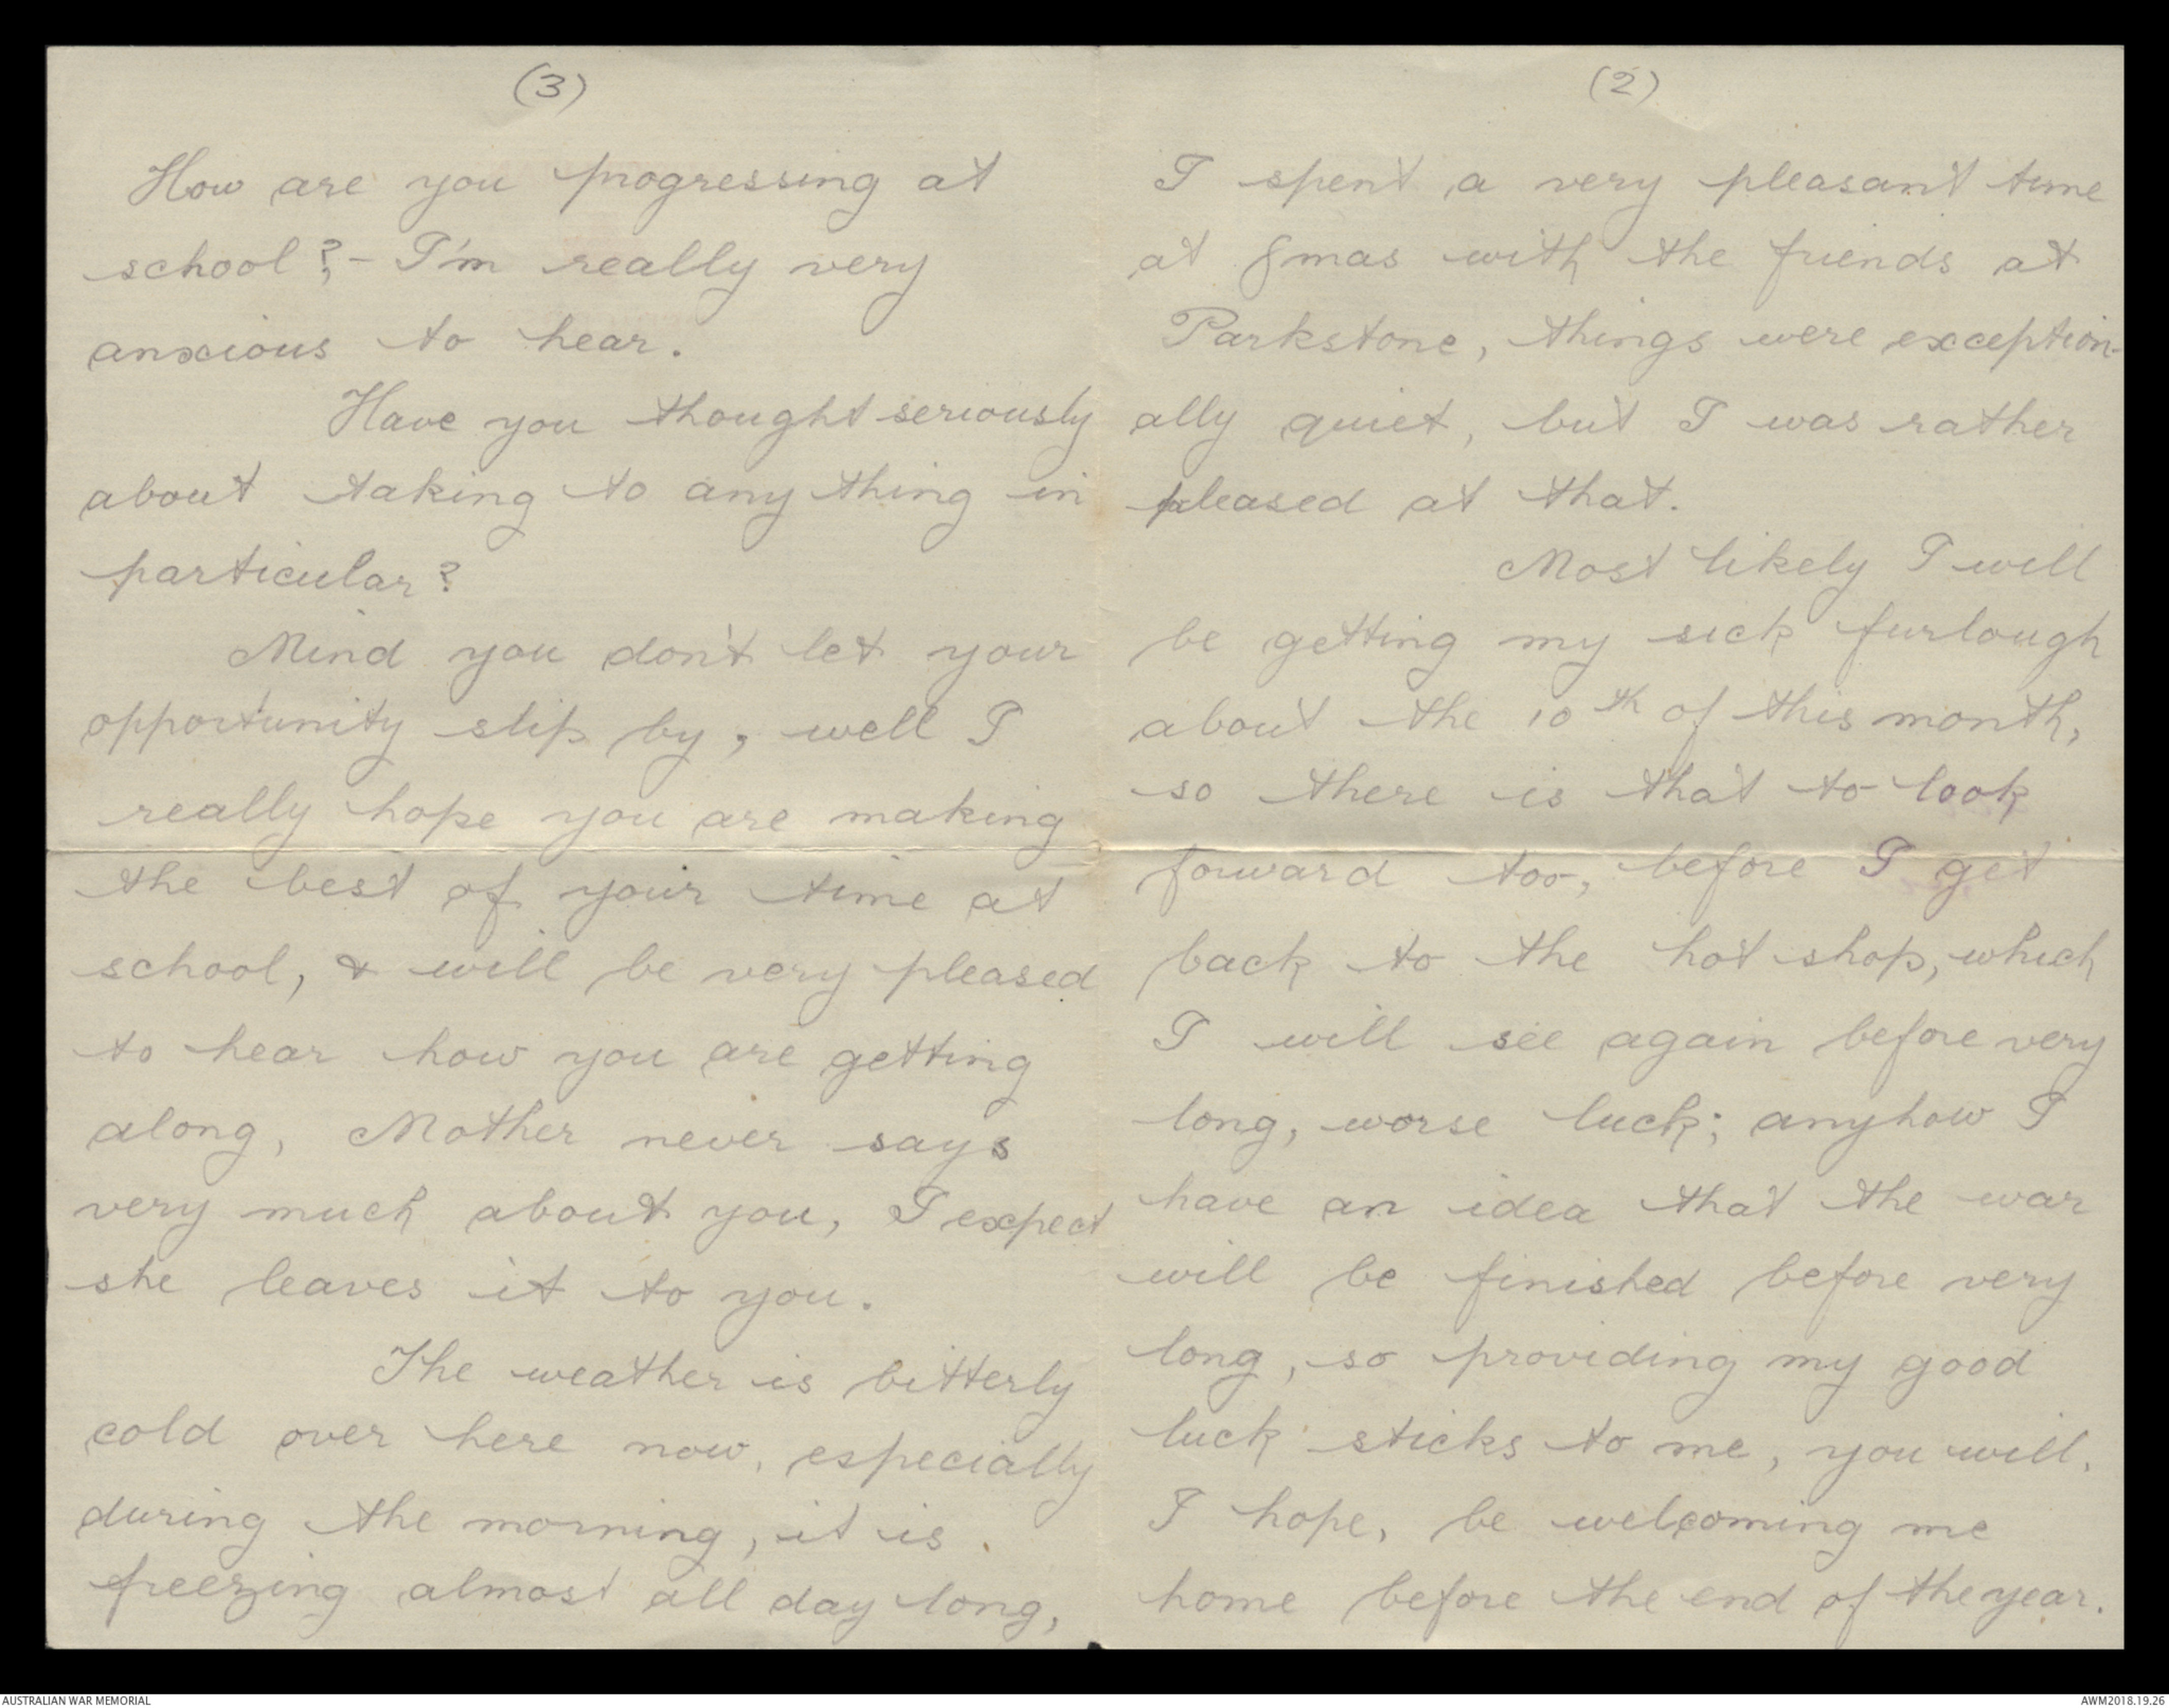 (3)
How are you progressing at
school? - I'm really very
anxious to hear.
Have you thought seriously
about taking to any thing in
particular?
Mind you don't let your
opportunity slip by, well I
really hope you are making
the best of your time at
school, & will be very pleased
to hear how you are getting
along, Mother never says
very much about you, I expect
she leaves it to you.
The weather is bitterly
cold over here now, especially
during the morning, it is
freezing almost all day long,
(2)
I spent a very pleasant time
at Xmas with the friends at
Parkstone, things were exception-
ally quiet, but I was rather
pleased at that.
Most likely I will
be getting my sick furlough
about the 10th of this month,
so there is that to look
forward too, before I get
back to the hot shop, which
I will see again before very
long, worse luck; anyhow I
have an idea that the war
will be finished before very
long, so providing my good
luck sticks to me, you will,
I hope, be welcoming me
home before the end of the year.
AUSTRALIAN WAR MEMORIAL
AWM2018.19.26